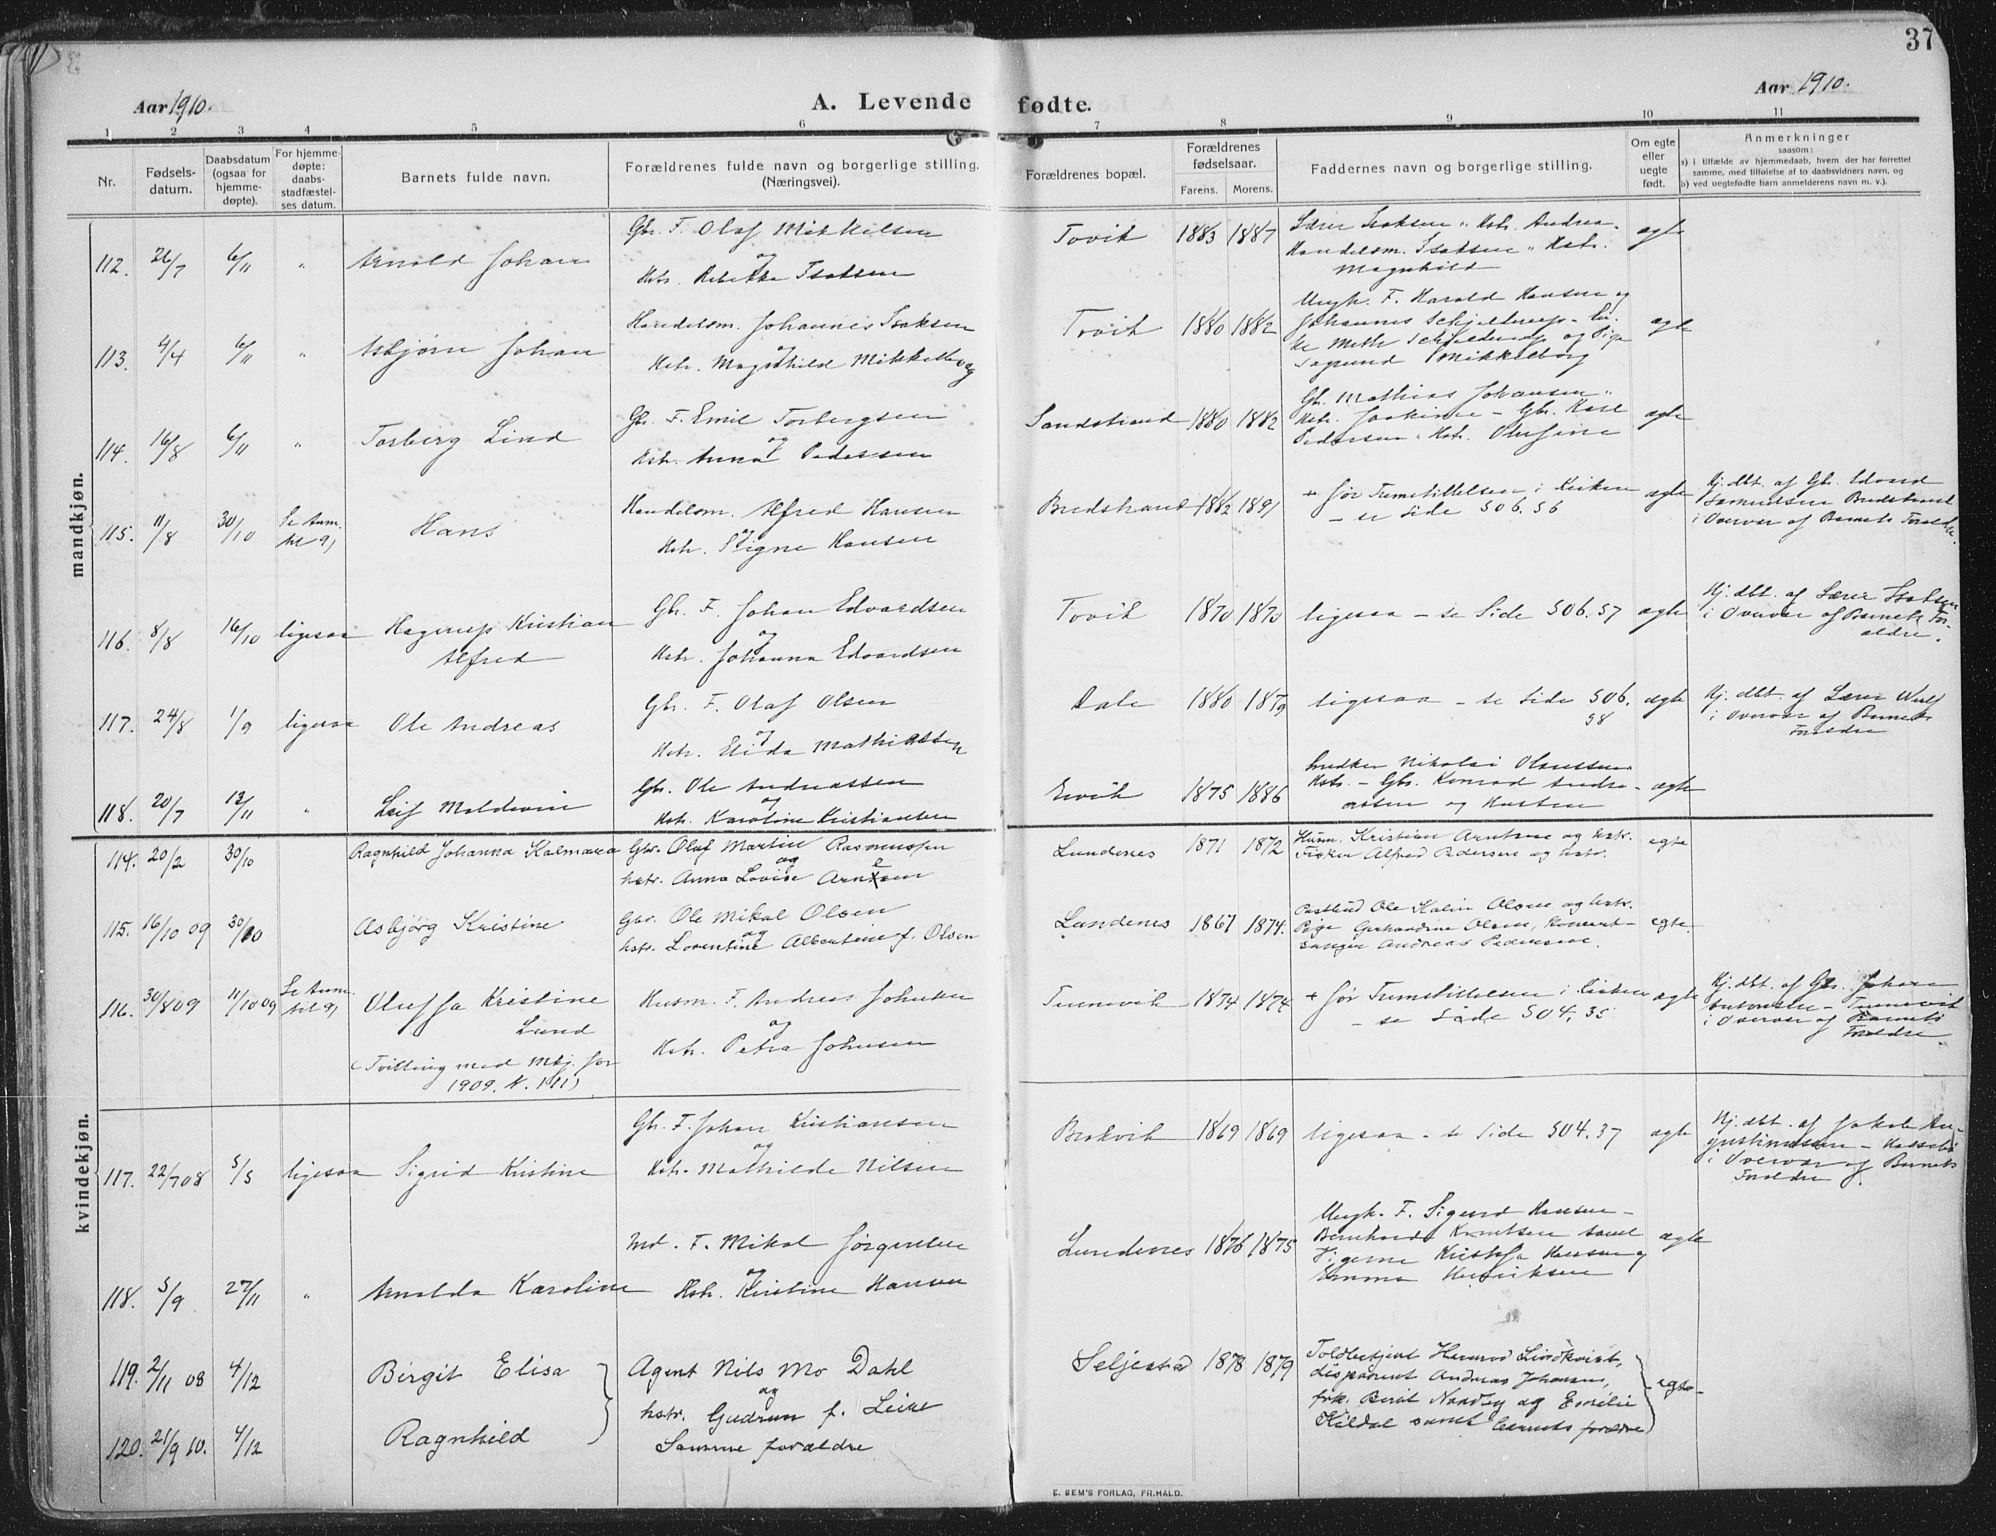 37
Aar 1910.
A. Levende fødte.
Aar 1910.
1 2 3 4 5 6 7 8 9 10 11
Nr.
Fødsels-
datum.
Daabsdatum
(ogsaa for
hjemme-
døpte).
For hjemme-
døpte:
daabs-
stadfæstel-
ses datum.
Barnets fulde navn.
Forældrenes fulde navn og borgerlige stilling.
(Næringsvei).
Forældrenes bopæl.
Forældrenes
fødselsaar.
Farens. Morens.
Faddernes navn og borgerlige stilling.
Om egte
eller
uegte
født.
Anmerkninger
saasom:
a) i tilfælde av hjemmedaab, hvem der har forrettet
samme, med tilføielse af to daabsvidners navn, og
b) ved uegtefødte barn anmelderens navn m. v.).
mandkjøn.
112. 26/7 6/11 " Arnold Johan
Gbr. F. Olaf Mikkelsen
og
Hstr. Rebekka Isaksen
Tovik 1883 1887
Lærer Isaksen " Hstr. Andrea
Handelsm. Isaksen " Hstr.
Magnhild
ægte
113. 4/4 6/11 " Asbjørn Johan
Handelsm. Johannes Isaksen
og
Hstr. Magnhild Mikkelborg
Tovik 1880 1882
Ungk. F. Harald Hansen og
Johannes Schjelderup
Sigmund Mikkelborg
ægte
114. 16/8 6/11 " Torberg Lind
Gbr. F. Emil Torbergsen
og
Hstr. Anna Pedersen
Sandstrand 1880 1882
Gb. Mathias Johansen "
Hstr. Joakime – Gbr. Karl
Pedersen " Hstr. Olufine
ægte
115. 11/8 30/10 Se Anm.
til 9)
Hans
Handelsm. Alfred Hansen
og
Hstr. Signe Hansen
Bredstrand 1882 1891
+ før Fremstillelsen i Kirken
– se Side 506. 56
ægte
Hj. dbt. af Gb. Edvard
Samuelsen Bredstrand
i Overvær af Barnets Forældre.
116. 8/8 16/10 ligesaa Hagerup Kristian
Alfred
Gbr. F. Johan Edvardsen
og
Hstr. Johanna Edvardsen
Tovik 1870 1870
ligesaa – se Side 506. 57
ægte
Hj. dbt. af Lærer Isaksen
i Overvær af Barnets For-
ældre.
117. 24/8 1/9 ligesaa Ole Andreas
Gbr. F. Olaf Olsen
og
Hstr. Elida Mathiassen
Dale 1880 1879
ligesaa – se Side 506.
58
ægte
Hj. dbt. af Lærer Wulf
i Overvær af Barnets
Forældre
118. 20/7 13/11 " Leif Moldevin
Gbr. Ole Andreassen
og
Hstr. Karoline Kristiansen
Ervik 1875 1886
Snedker Nikolai
Hstr. – Gbr. Konrad Andre-
assen og Hustru
ægte
kvindekjøn.
114. 20/2 30/10 Ragnhild Johanna Kalmara
Gbr. Olaf Martin Rasmussen
og
hstr. Anna Lovise Arntsen
Lundenes 1871 1872
Husm. Kristian Arntsen og hstr.
Fisker Alfred Pedersen og hstr.
egte
115. 16/10 09 30/10 Asbjørg Kristine
Gbr. Ole Mikal Olsen
og
hstr. Lorentine Albertine f. Olsen
Lundenes 1867 1874.
Postbud Ole Kalin Olsen og hstr.
Pige Gerhardine Olsen, Konsert-
sanger Andreas Pedersen.
egte.
116. 30/8 09 11/10 09 Se Anm.
til 9)
Oluffa Kristine
Lund
(Tvilling med Mkj. for
1909. N. 111)
Husm. F. Andreas Johnsen
og
Hstr. Petra Johnsen
Tunnevik 1874 1874
+ før Fremstillelsen i Kirken
– se Side 504, 35
ægte
Hj. dbt. af Gbr. Johan
Antonsen – Tunnevik
i Overvær af Barnets
Forældre.
117. 22/7 08 5/5 ligesaa Sigrid Kristine
Gb. F. Johan Kristiansen
og
Hstr. Mathilde Nilsen
Brokvik 1869 1869
ligesaa – se Side 504. 37
ægte
Hj. dbt. af Jakob Au-
gustinussen –
i Overvær af Barnets
Forældre.
118. 5/9 27/11 " Arnolda Karoline
Md. F. Mikal Jørgensen
og
Hstr. Kristine Hansen
Lundenes 1876 1875
Ungk. F. Sigurd Hansen –
Bernhard Knutsen samt
Pigerne Kristofa Hansen og
Emma Henriksen
ægte
119. 2/11 08 4/12 Birgit Elisa
Agent Nils Mo Dahl
og
hstr. Gudrun f. Leire
Seljestad 1878 1879
Toldbetjent Lindkvist,
Disponent Andreas Johansen,
frk. Berit Nordby og Emilie
Kildal samt barnets forældre
egte
120. 21/9 10. 4/12 Ragnhild
Samme forældre
E. SEM'S FORLAG, FR.HALD.